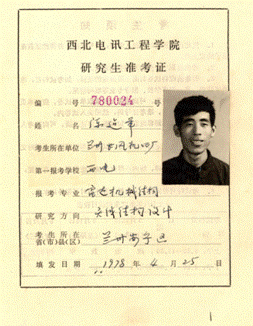 西北电讯工程学院
研究生准考证
编号 780024 号
姓名
考生所在单位
第一报考学校 西电
报考专业 雷达机械结构
研究方向 天线结构设计
考生所在
省(市)县(区) 兰州安宁区
填发日期 1978 年 4 月 25 日